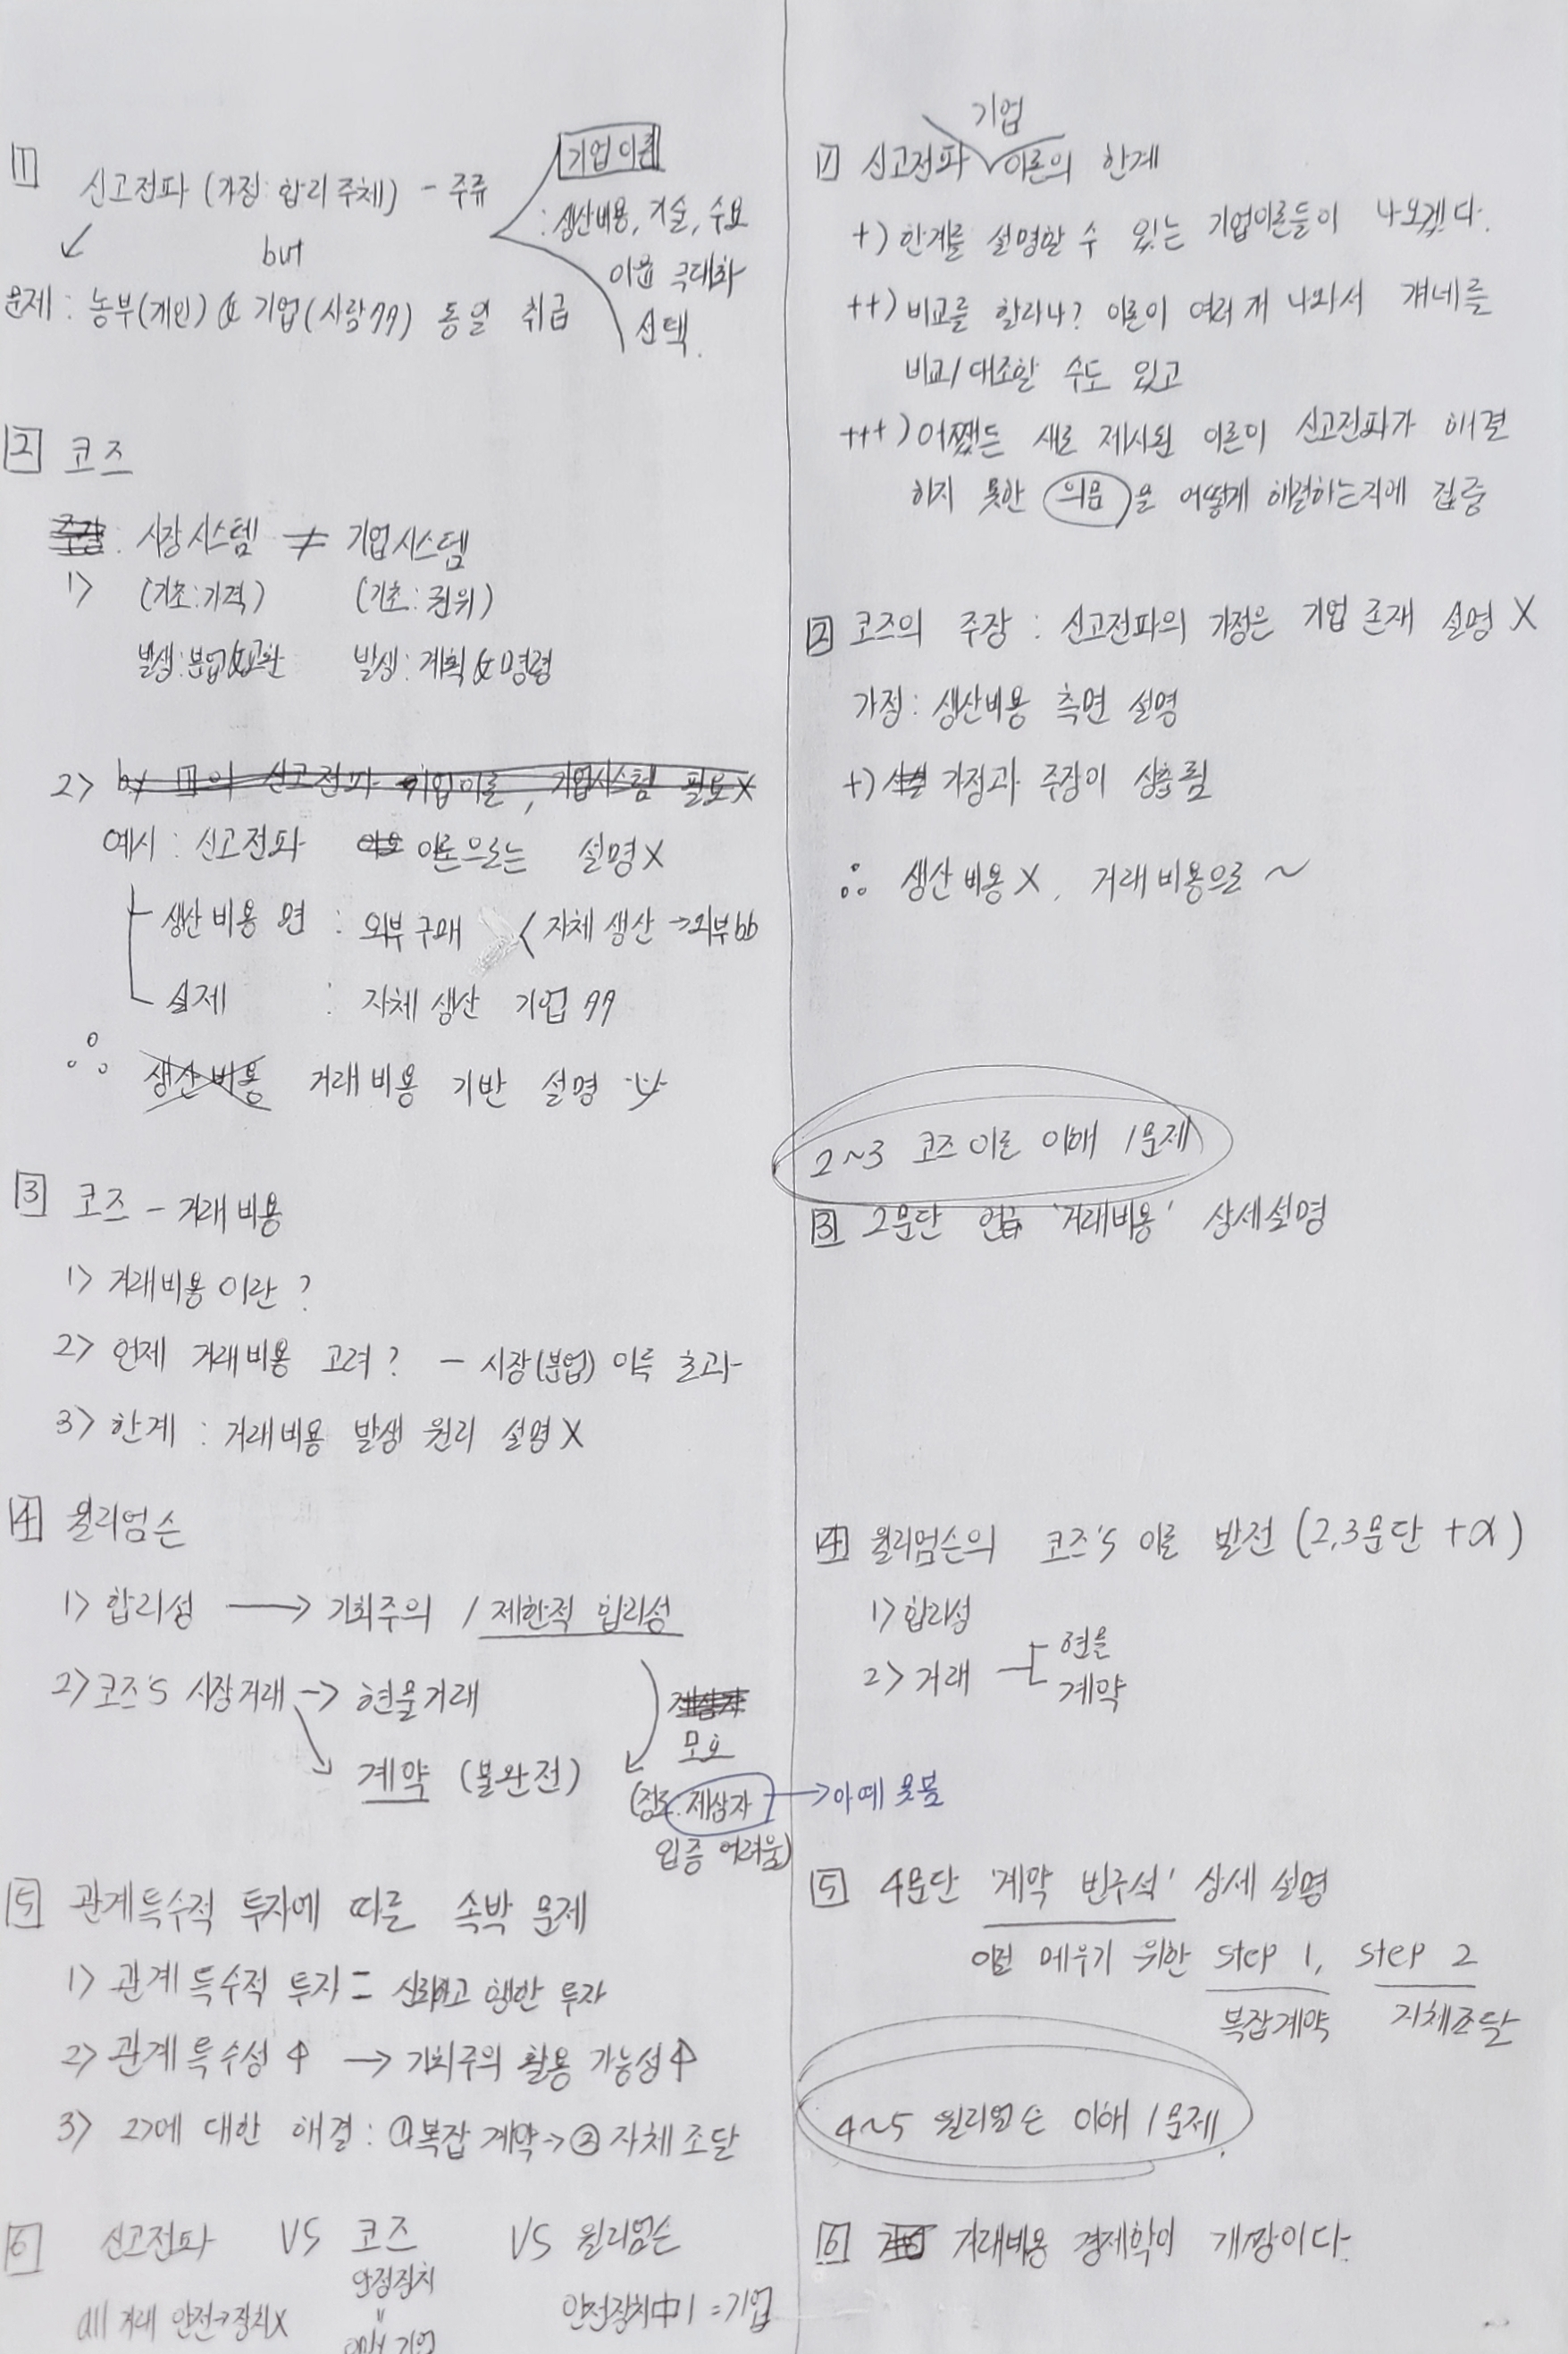 1 신고전파 (가정: 합리 주체) - 주류
기업이론
: 생산비용, 기술, 수요
이윤 극대화
선택.
but
문제 : 농부(개인) & 기업(사람↑↑) 동일 취급
2 코즈
주장: 시장시스템 ≠ 기업시스템
1> (기초:가격) (기초:권위)
발생:분업&교환 발생: 계획&명령
2> by 1의 신고전파 기업이론, 기업시스템 필요X
예시 : 신고전파 이론으로는 설명X
생산비용 면 : 외부구매 < 자체 생산 →외부
실제 : 자체생산 기업 ↑↑
∴ 생산비용 거래비용 기반 설명
3 코즈 - 거래비용
1> 거래비용이란?
2> 언제 거래비용 고려? - 시장(분업) 이득 초과
3> 한계 : 거래비용 발생 원리 설명X
4 윌리엄슨
1> 합리성 → 기회주의 / 제한적 합리성
2> 코즈's 시장거래 → 현물거래
계약 (불완전)
모호
(정도. 제삼자 → 아예 못봄
입증 어려움)
5 관계특수적 투자에 따른 속박 문제
1> 관계 특수적 투자 = 신뢰하고 행한 투자
2> 관계 특수성↑ → 기회주의 활용 가능성↑
3> 2>에 대한 해결: ①복잡 계약→② 자체조달
6 신고전파 VS 코즈 VS 윌리엄슨
안전장치
안전장치中1 = 기업
all 거래 안전→장치X
=
only 기업
1 신고전파 기업 이론의 한계
+) 한계를 설명할 수 있는 기업이론들이 나오겠다.
++) 비교를 할라나? 이론이 여러개 나와서 걔네를
비교/대조할 수도 있고
+++) 어쨌든 새로 제시된 이론이 신고전파가 해결
하지 못한 의문을 어떻게 해결하는지에 집중
2 코즈의 주장 : 신고전파의 가정은 기업 존재 설명 X
가정: 생산비용 측면 설명
+) 가정과 주장이 상충됨
∴ 생산비용X, 거래비용으로 ~
2~3 코즈이론 이해 1문제
3 2문단 언급 '거래비용' 상세설명
4 윌리엄슨의 코즈's 이론 발전 (2,3문단 +α)
1> 합리성
2> 거래
현물
계약
5 4문단 '계약 빈구석' 상세 설명
이런 메우기 위한 step 1, step 2
복잡계약 자체조달
4~5 윌리엄슨 이해 1문제.
6 거래비용 경제학이 개짱이다